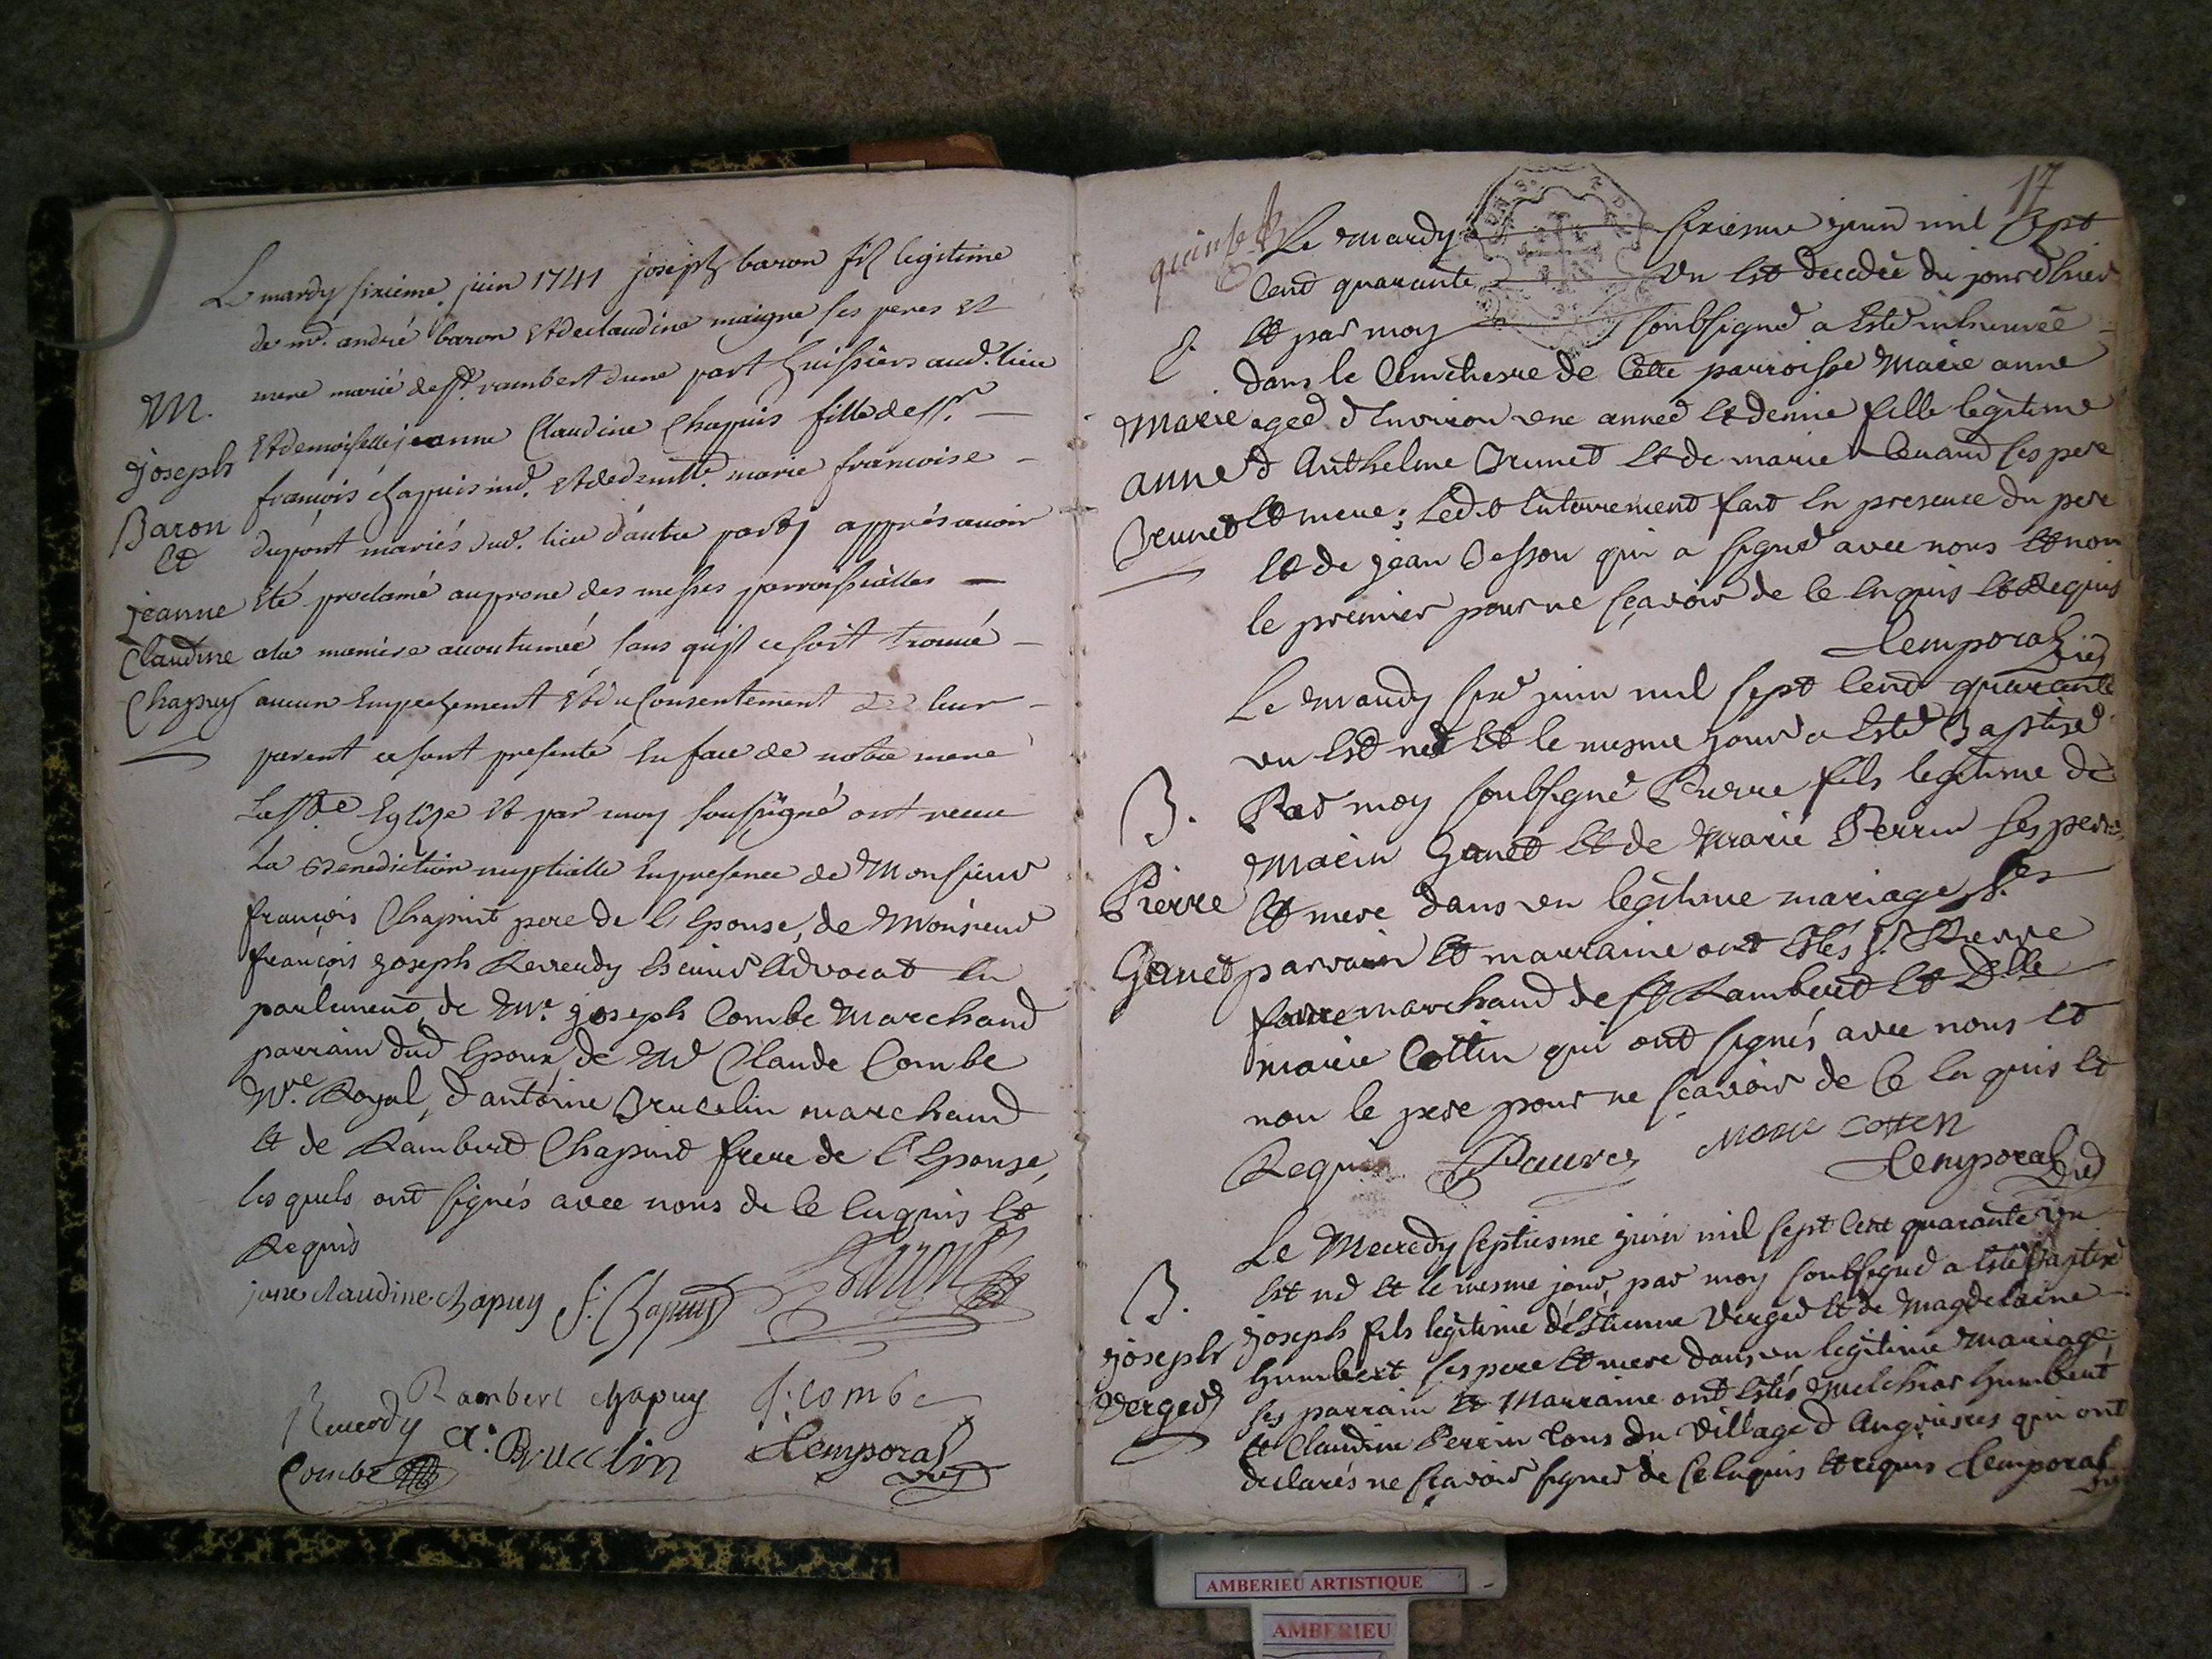 Le mardy sixième juin 1741 joseph baron fils legitime
de md. andré baron Et de claudine maigne ses peres Et
M. mere marié de st. rambert d'une part huissiers aud. lieu
Et demoiselle jeanne Claudine Chapuis fille de sr.
joseph
françois chapuis md. Et de demlle. marie francoise
Baron
dupont mariés dud. lieu d'autre part apprés avoir
Et
jeanne Eté proclamé au prone des messes parroissialles
Claudine a la maniere accoutumée sans qu'il ce soit trouvé
Chapuy aucun Empechement Et du Consentement de leur
parent ce sont presenté En face de notre mere
La Ste Eglise Et par moy soussigné ont receu
La Benediction nuptialle En presence de Monsieur
françois Chapuit pere de l'Epouse, de Monsieur
françois joseph Reverdy Advocat En
parlement, de Mre. joseph Combe Marchand
parrain dud Epoux, de Mr Claude Combe
Nre. Royal, d'antoine Brucelin marchand
Et de Rambert Chapuit frere de l'Epouse,
les quels ont signés avec nous de ce Enquis Et
Requis
jane claudine chapuy f. Chapuy Baron
Rambert chapuy J. combe
Reverdy a. Brucelin Temporal
Combe vic
17
quinse Le mardy sixiesme juin mil Sept
Cent quarante un Est decedée du jour d'hier
Et par moy soubsigné a Esté inhumée
E.
dans le Cimethere de Cette parroisse Marie anne
Marie agée d'Environ une année Et demie fille legitime
anne d'Anthelme Brunet Et de marie ses pere
Brunet Et mere; Ledit Enterrement fait En presence du pere
Et de jean Besson qui a signé avec nous Et non
le premier pour ne sçavoir de ce Enquis Et Requis
Temporal vic
Le Mardy six juin mil sept Cent quarante
un Est né Et le mesme jour a Esté Baptisé
B. Par moy soubsigné Pierre fils legitime de
Marin Genet Et de Marie Perrin ses pere
Pierre Et mere dans un legitime mariage ses
Genet parrain Et marraine ont Estés Sr. Pierre
favre marchand de St Rambert Et Dlle
marie Cottin qui ont signés avec nous Et
non le pere pour ne sçavoir de Ce Enquis Et
Requis Favre marie cotten
Temporal vic
Le Mecredy septiesme juin mil sept Cent quarante un
B. Est né Et le mesme jour, par moy soubsigné a Esté Baptisé
joseph joseph fils legitime d'Estienne Verger Et de Magdelaine
Verger humbert ses pere Et mere dans un legitime mariage
ses parrain Et Marraine ont Estés Melchior humbert
Et Claudine Perrin tous du village d'Angrieres qui ont
declarés ne sçavoir signer de Ce Enquis Et requis Temporal
vic
AMBERIEU ARTISTIQUE
AMBERIEU